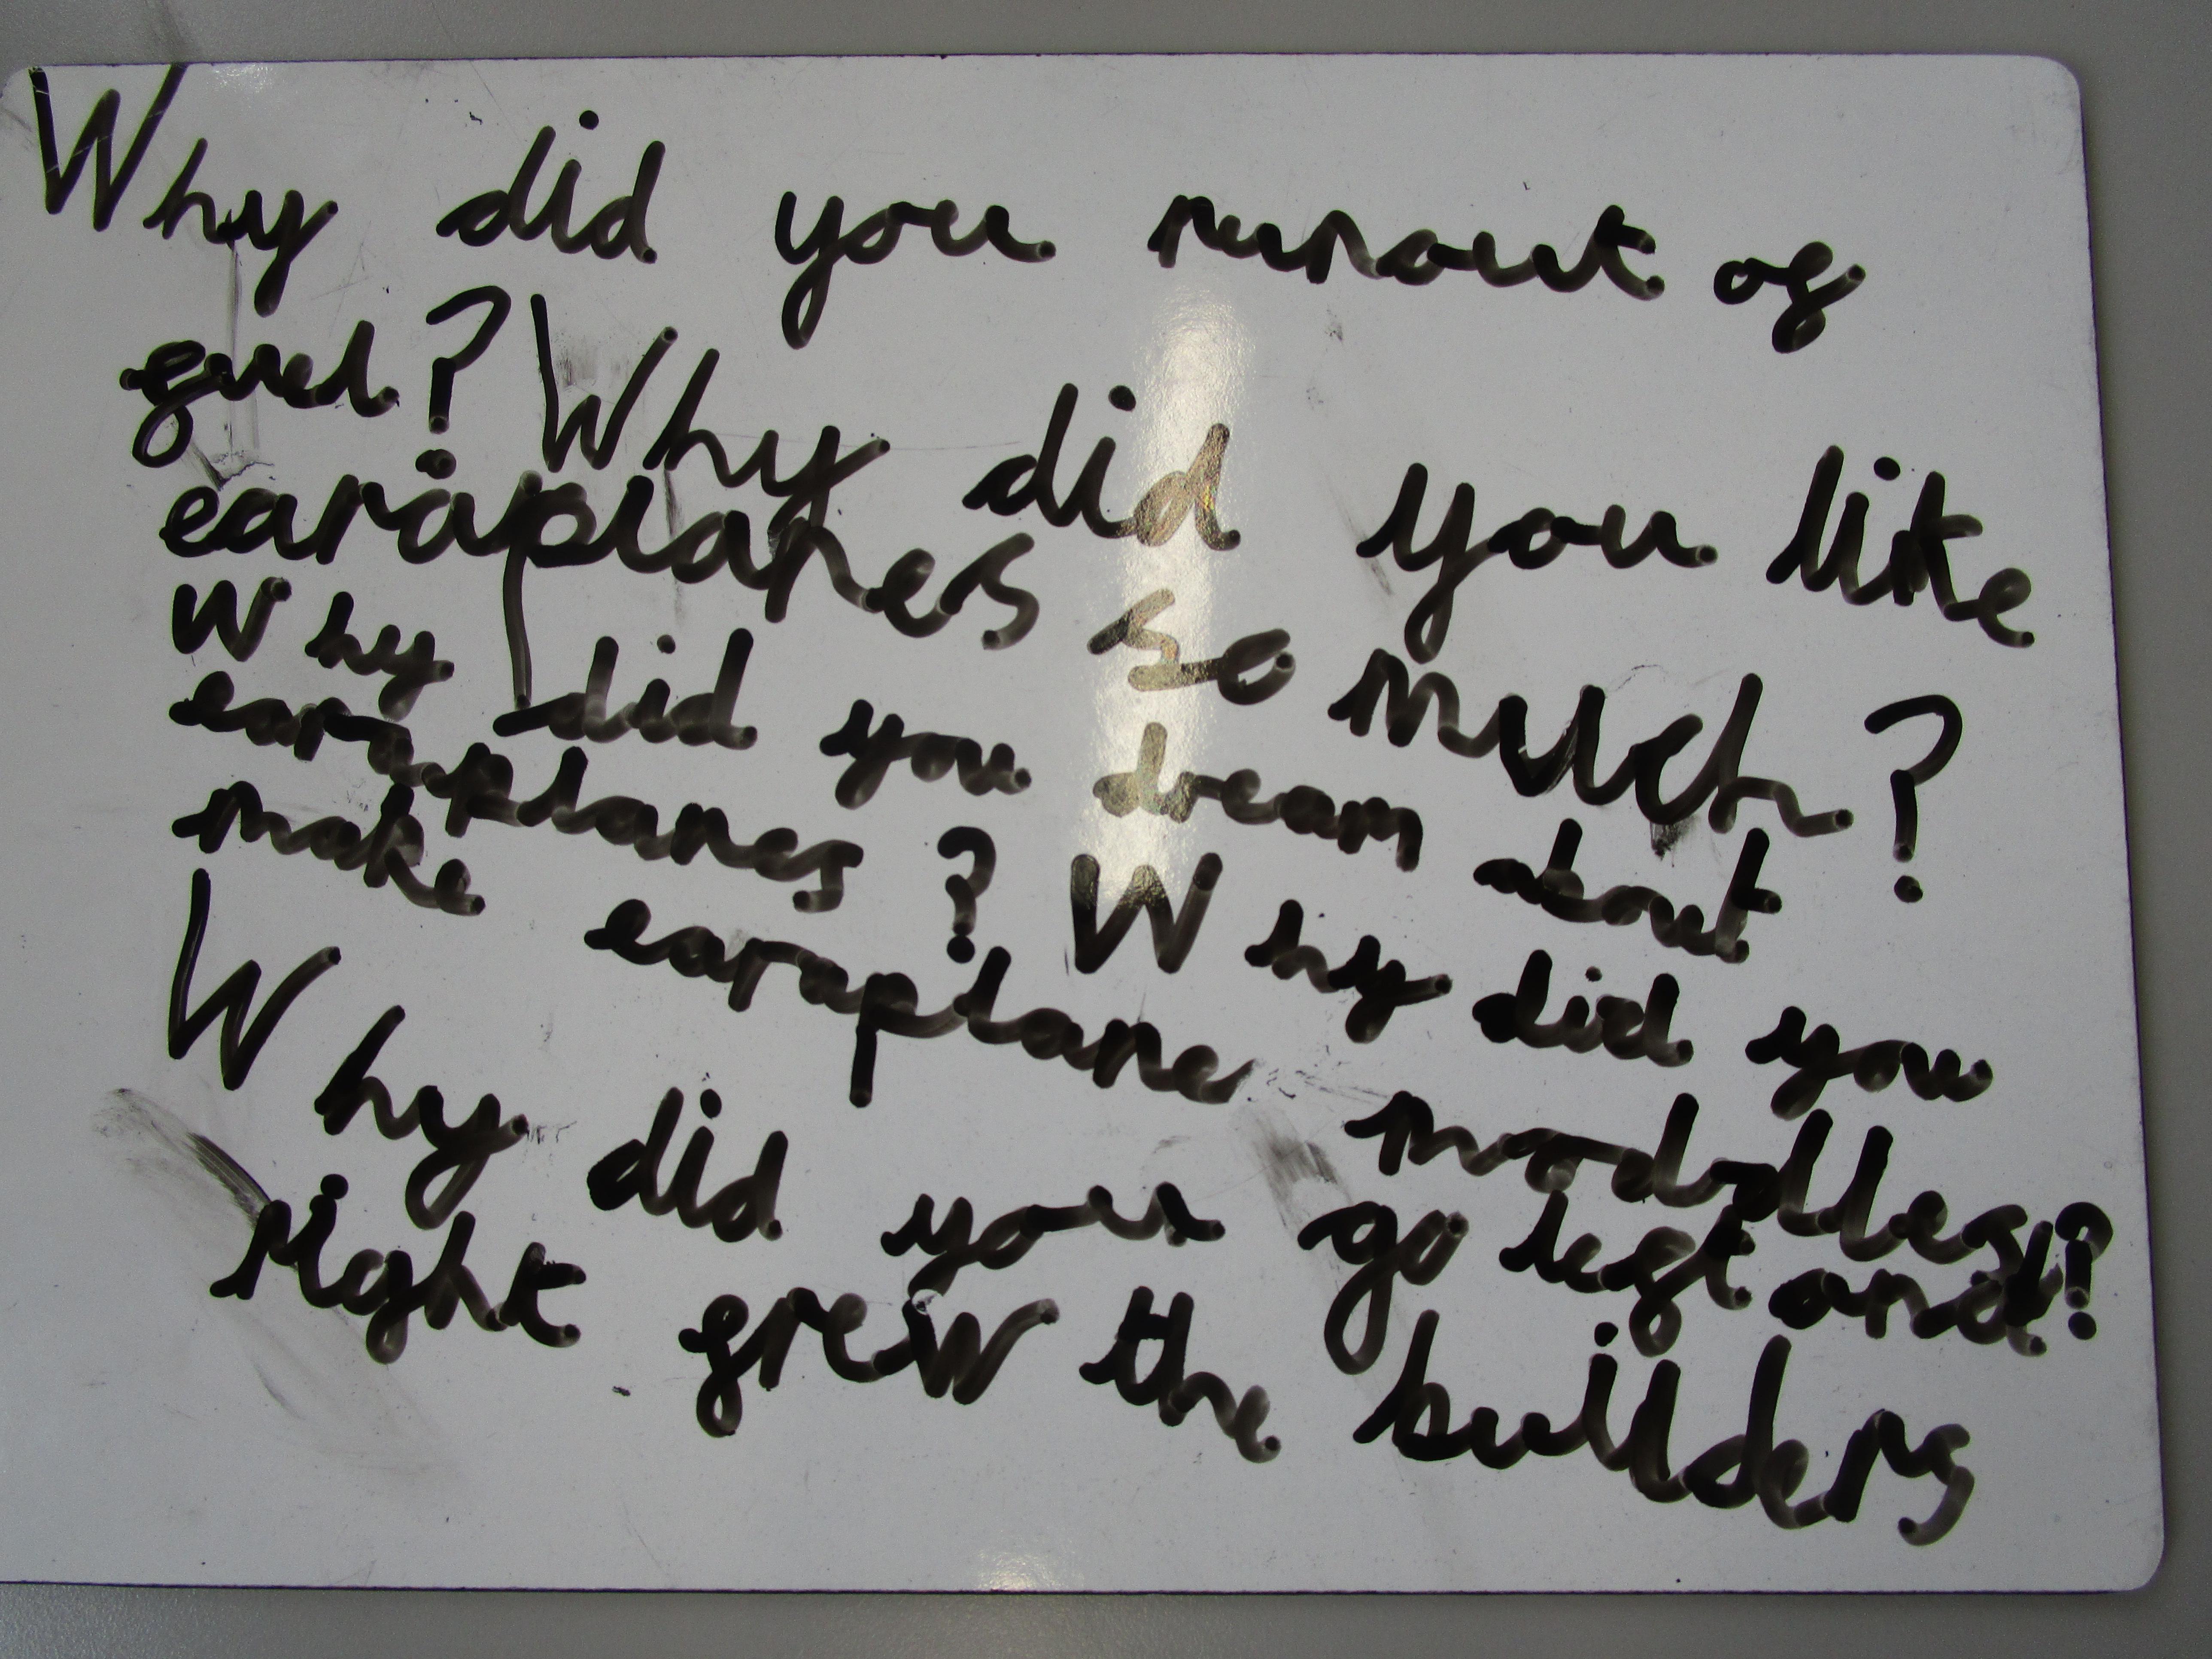 Why did you runout of
fuel? Why did you like
earaplanes so much?
Why did you dream about
earaplanes? Why did you
make earaplane modolles?
Why did you go left and
right frew the builders